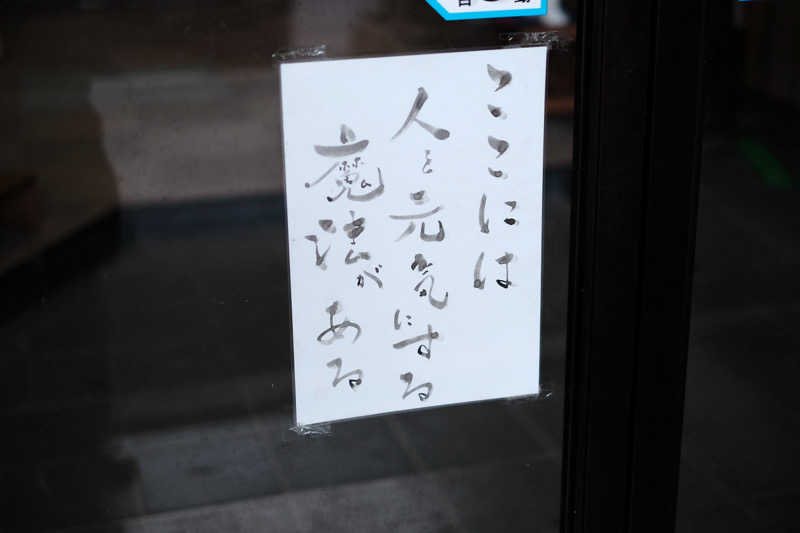 ここには
人を元気にする
魔法がある